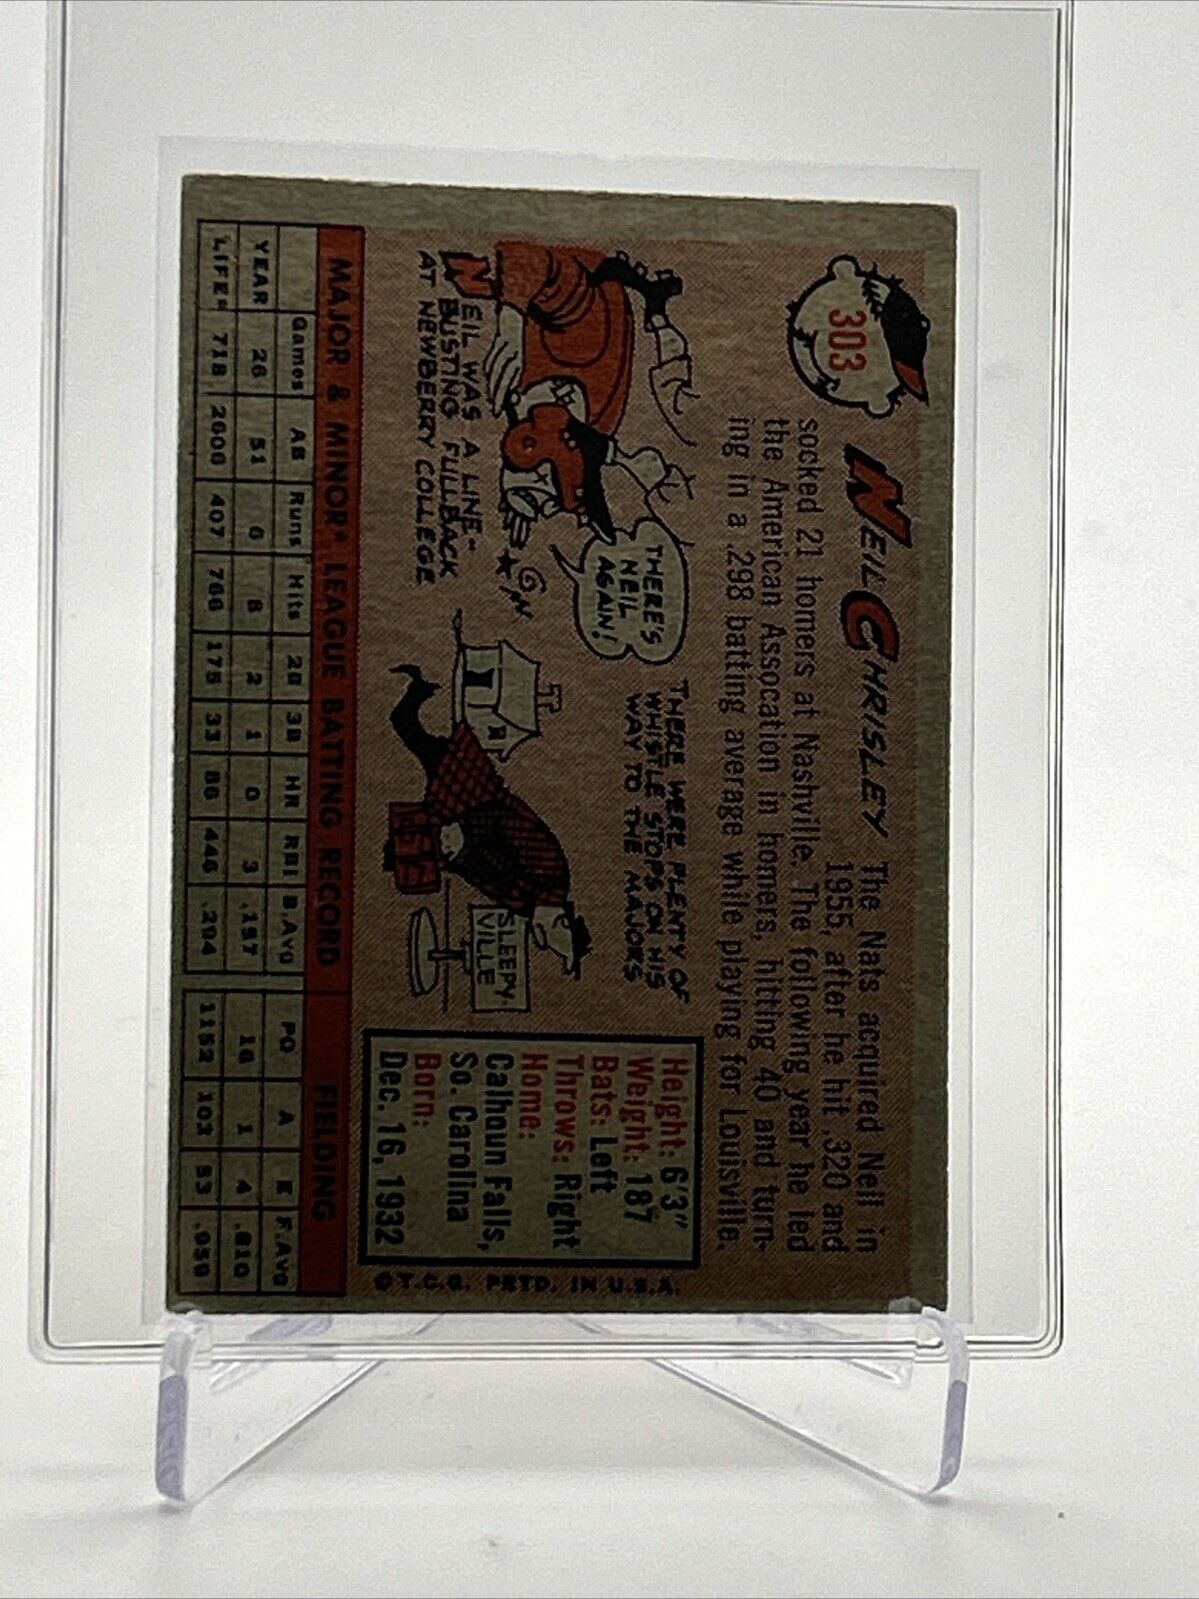 303
NEIL CHRISLEY The Nats acquired Neil in
1955, after he hit .320 and
socked 21 homers at Nashville. The following year he led
the American Assocation in homers, hitting 40 and turn-
ing in a .298 batting average while playing for Louisville.
THERE'S
NEIL
AGAIN!
NEIL WAS A LINE-
BUSTING FULLBACK
AT NEWBERRY COLLEGE
THERE WERE PLENTY OF
WHISTLE STOPS ON HIS
WAY TO THE MAJORS
SLEEPY-
VILLE
Height: 6'3"
Weight: 187
Bats: Left
Throws: Right
Home:
Calhoun Falls,
So. Carolina
Born:
Dec. 16, 1932
© T.C.G. PRTD. IN U.S.A.
MAJOR & MINOR LEAGUE BATTING RECORD FIELDING
Games AB Runs Hits 2B 3B HR RBI B.Avg PO A E F.Avg
YEAR 26 51 6 8 2 1 0 3 .157 16 1 4 .810
LIFE 718 2608 407 766 175 33 86 446 .294 1152 103 53 .959